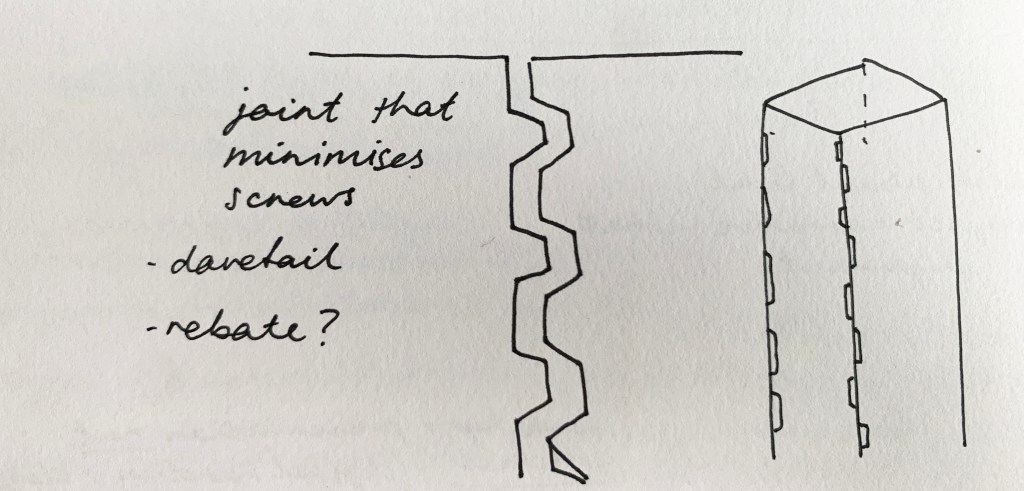 joint that
minimises
screws
- dovetail
- rebate?